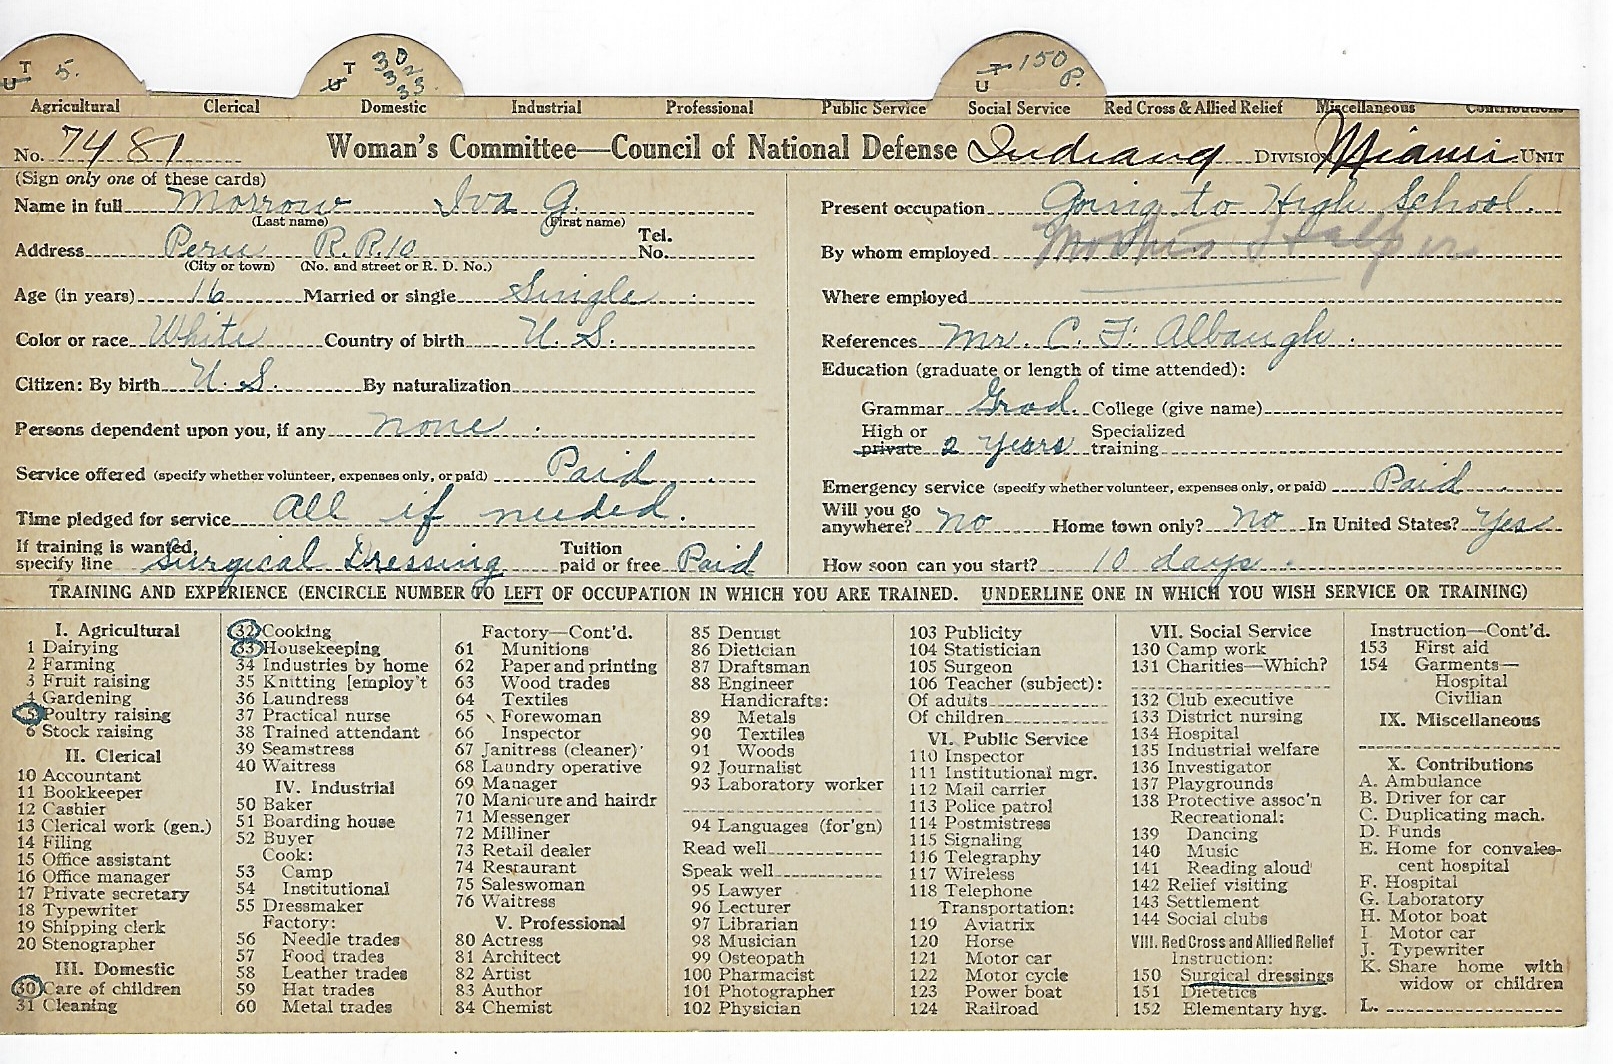 T U 5.
T U 30 32 33.
T U 150 P.
Agricultural Clerical Domestic Industrial Professional Public Service Social Service Red Cross & Allied Relief Miscellaneous Contributions
No. 7481 Woman's Committee—Council of National Defense Indiana DIVISION Miami UNIT
(Sign only one of these cards)
Name in full Morrow Iva G.
(Last name) (First name)
Address Peru R.R.10 Tel. No.
(City or town) (No. and street or R. D. No.)
Age (in years) 16 Married or single Single
Color or race White Country of birth U. S.
Citizen: By birth U. S. By naturalization
Persons dependent upon you, if any none.
Service offered (specify whether volunteer, expenses only, or paid) Paid
Time pledged for service All if needed.
If training is wanted, specify line Surgical Dressing Tuition paid or free Paid
Present occupation Going to High School.
By whom employed Mothers Helpers
Where employed
References Mr. C. F. Albaugh.
Education (graduate or length of time attended):
Grammar Grad. College (give name)
High or private 2 years Specialized training
Emergency service (specify whether volunteer, expenses only, or paid) Paid
Will you go anywhere? No Home town only? No In United States? Yes
How soon can you start? 10 days.
TRAINING AND EXPERIENCE (ENCIRCLE NUMBER TO LEFT OF OCCUPATION IN WHICH YOU ARE TRAINED. UNDERLINE ONE IN WHICH YOU WISH SERVICE OR TRAINING)
I. Agricultural
1 Dairying
2 Farming
3 Fruit raising
4 Gardening
5 Poultry raising
6 Stock raising
II. Clerical
10 Accountant
11 Bookkeeper
12 Cashier
13 Clerical work (gen.)
14 Filing
15 Office assistant
16 Office manager
17 Private secretary
18 Typewriter
19 Shipping clerk
20 Stenographer
III. Domestic
30 Care of children
31 Cleaning
32 Cooking
33 Housekeeping
34 Industries by home
35 Knitting [employ't
36 Laundress
37 Practical nurse
38 Trained attendant
39 Seamstress
40 Waitress
IV. Industrial
50 Baker
51 Boarding house
52 Buyer
Cook:
53 Camp
54 Institutional
55 Dressmaker
Factory:
56 Needle trades
57 Food trades
58 Leather trades
59 Hat trades
60 Metal trades
Factory—Cont'd.
61 Munitions
62 Paper and printing
63 Wood trades
64 Textiles
65 Forewoman
66 Inspector
67 Janitress (cleaner)
68 Laundry operative
69 Manager
70 Manicure and hairdr
71 Messenger
72 Milliner
73 Retail dealer
74 Restaurant
75 Saleswoman
76 Waitress
V. Professional
80 Actress
81 Architect
82 Artist
83 Author
84 Chemist
85 Dentist
86 Dietician
87 Draftsman
88 Engineer
Handicrafts:
89 Metals
90 Textiles
91 Woods
92 Journalist
93 Laboratory worker
94 Languages (for'gn)
Read well
Speak well
95 Lawyer
96 Lecturer
97 Librarian
98 Musician
99 Osteopath
100 Pharmacist
101 Photographer
102 Physician
103 Publicity
104 Statistician
105 Surgeon
106 Teacher (subject):
Of adults
Of children
VI. Public Service
110 Inspector
111 Institutional mgr.
112 Mail carrier
113 Police patrol
114 Postmistress
115 Signaling
116 Telegraphy
117 Wireless
118 Telephone
Transportation:
119 Aviatrix
120 Horse
121 Motor car
122 Motor cycle
123 Power boat
124 Railroad
VII. Social Service
130 Camp work
131 Charities—Which?
132 Club executive
133 District nursing
134 Hospital
135 Industrial welfare
136 Investigator
137 Playgrounds
138 Protective assoc'n
Recreational:
139 Dancing
140 Music
141 Reading aloud
142 Relief visiting
143 Settlement
144 Social clubs
VIII. Red Cross and Allied Relief
Instruction:
150 Surgical dressings
151 Dietetics
152 Elementary hyg.
Instruction—Cont'd.
153 First aid
154 Garments—
Hospital
Civilian
IX. Miscellaneous
X. Contributions
A. Ambulance
B. Driver for car
C. Duplicating mach.
D. Funds
E. Home for convales-
cent hospital
F. Hospital
G. Laboratory
H. Motor boat
I Motor car
J. Typewriter
K. Share home with
widow or children
L.